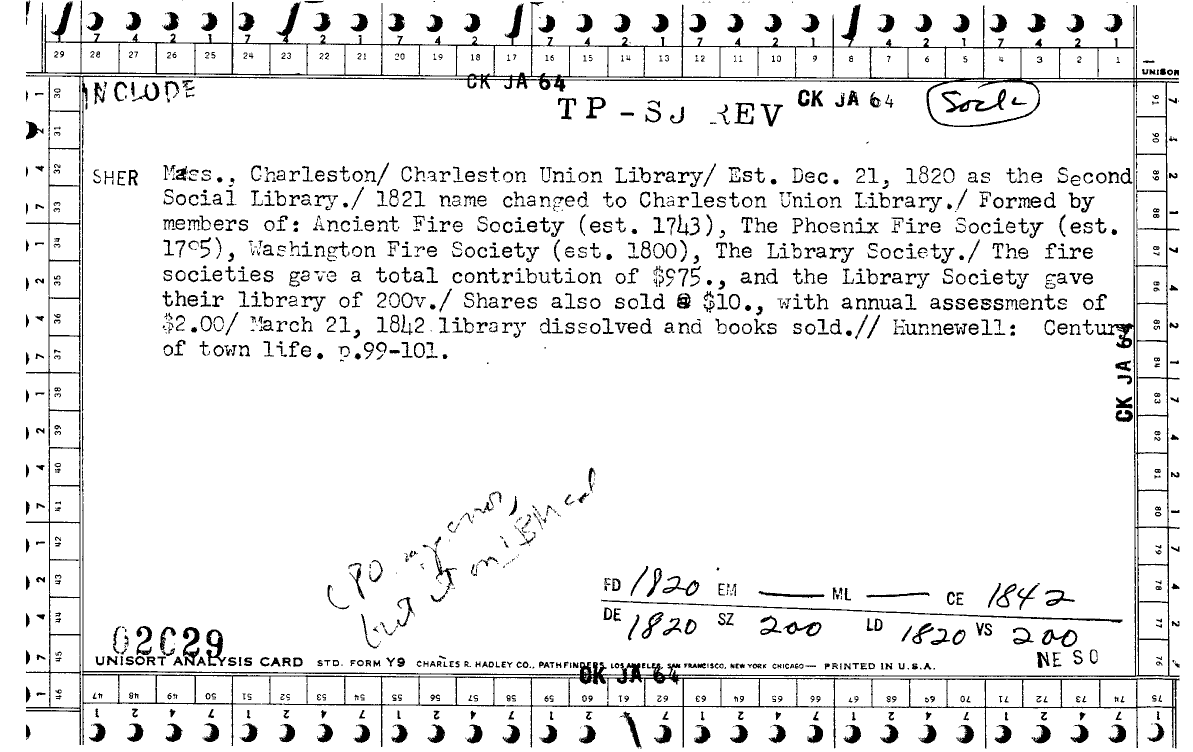 7 4 2 1 7 4 2 1 7 4 2 1 7 4 2 1 7 4 2 1 7 4 2 1 7 4 2 1
29 28 27 26 25 24 23 22 21 20 19 18 17 16 15 14 13 12 11 10 9 8 7 6 5 4 3 2 1
UNISOR
INCLUDE
CK JA 64
TP - SJ REV
CK JA 64
SHER
Mass., Charleston/ Charleston Union Library/ Est. Dec. 21, 1820 as the Second
Social Library./ 1821 name changed to Charleston Union Library./ Formed by
members of: Ancient Fire Society (est. 1743), The Phoenix Fire Society (est.
Washington Fire Society (est. 1800), The Library Society./ The fire
societies gave a total contribution of $975., and the Library Society gave
their library of 200v./ Shares also sold @ $10., with annual assessments of
$2.00/ March 21, 1842 library dissolved and books sold.// Hunnewell: Century
of town life. p.99-101.
CK JA 64
but on IBM card
FD 1820 EM — ML — CE 1842
DE 1820 SZ 200 LD 1820 VS 200
NE SO
02C29
UNISORT ANALYSIS CARD STD. FORM Y9 CHARLES R. HADLEY CO., PATHFINDERS, LOS ANGELES, SAN FRANCISCO, NEW YORK CHICAGO— PRINTED IN U.S.A.
CK JA 64
46 47 48 49 50 51 52 53 54 55 56 57 58 59 60 61 62 63 64 65 66 67 68 69 70 71 72 73 74 75